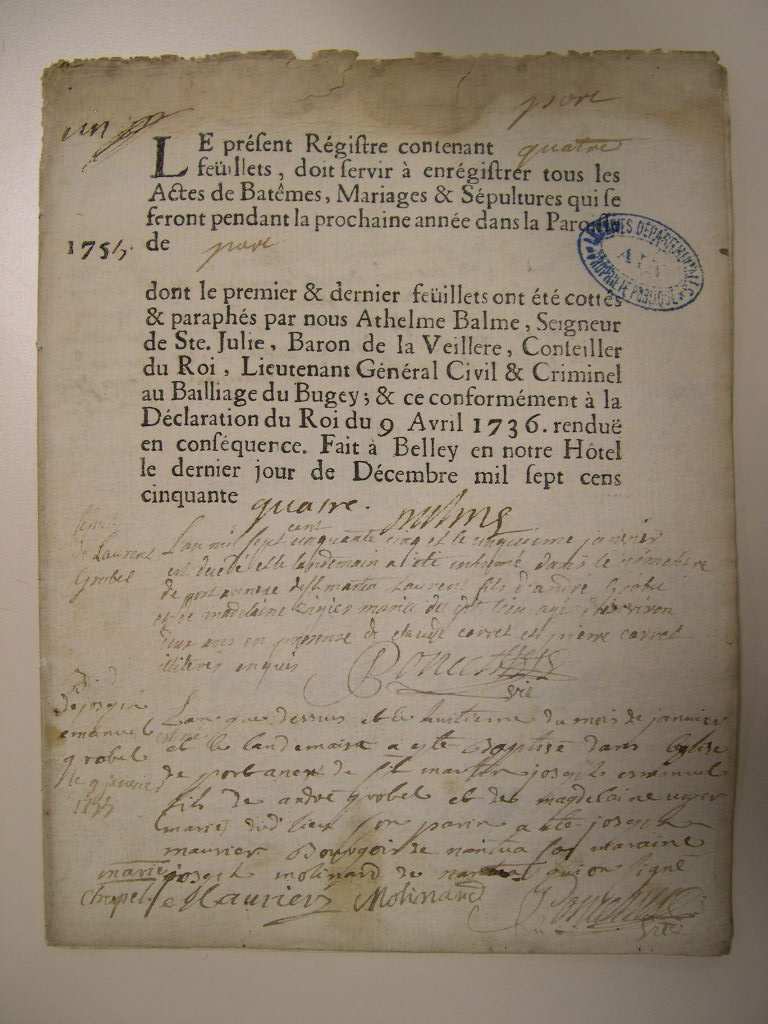 port
LE préſent Régiſtre contenant quatre
feüillets, doit ſervir à enrégiſtrer tous les
Actes de Batêmes, Mariages & Sépultures qui ſe
feront pendant la prochaine année dans la Paroiſſe
1755. de port
ARCHIVES DÉPARTEMENTALES
AIN
PROPRIÉTÉ PUBLIQUE
dont le premier & dernier feüillets ont été cottés
& paraphés par nous Athelme Balme, Seigneur
de Ste. Julie, Baron de la Veillere, Conſeiller
du Roi, Lieutenant Général Civil & Criminel
au Bailliage du Bugey; & ce conformément à la
Déclaration du Roi du 9 Avril 1736. renduë
en conſéquence. Fait à Belley en notre Hôtel
le dernier jour de Décembre mil ſept cens
cinquante quatre.
de Laurent
Grobel
L'an mil sept cent cinquante cinq et le vingtieme janvier
est decédé et le landemain a été enterré dans le cémetiere
de port annexe de st martin Laurent fils d'andré Grobel
et de madelaine mariés du dit lieu agé d'environ
deux ans en presence de claude carret et pierre carret
illiteres enquis
de joseph
emanuel
grobel
le 9 janvier
1755
L'an que dessus et le huitieme du mois de janvier est né
et le landemain a esté Baptisé dans l'eglise
de port annexe de st martin joseph emanuel
fils de andré grobel et de magdelaine
mariés dud lieu son parin a été joseph
maurier Bourgois de nantua sa maraine
joseph molinard de nantua qui on signé
marie
chapel
Maurier Molinard